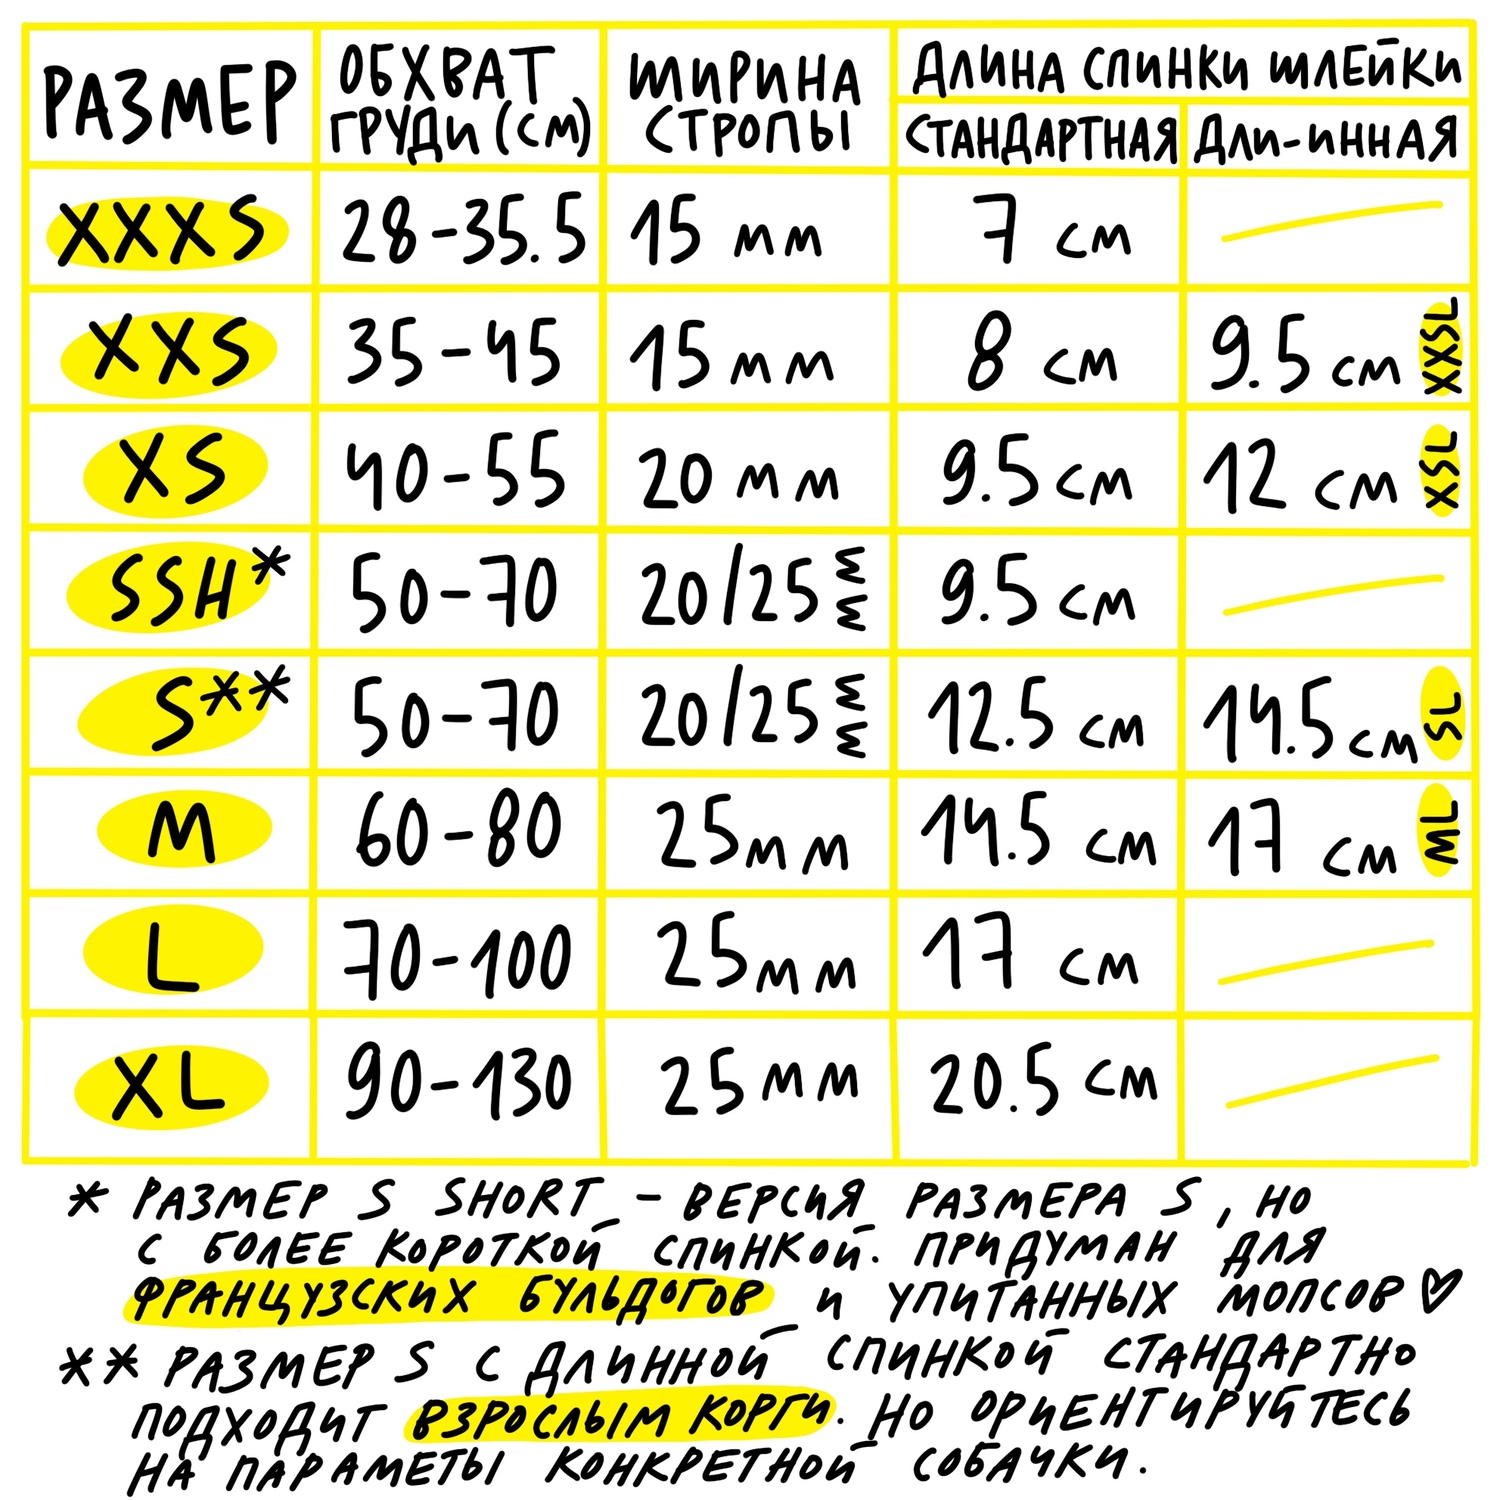 РАЗМЕР
ОБХВАТ
ГРУДИ (СМ)
ШИРИНА
СТРОПЫ
ДЛИНА СПИНКИ ШЛЕЙКИ
СТАНДАРТНАЯ
ДЛИ-ИННАЯ
XXXS 28-35.5 15 мм 7 см
XXS 35-45 15 мм 8 см 9.5 см XXSL
XS 40-55 20 мм 9.5 см 12 см XSL
SSH* 50-70 20/25 мм 9.5 см
S** 50-70 20/25 мм 12.5 см 14.5 см SL
M 60-80 25 мм 14.5 см 17 см ML
L 70-100 25 мм 17 см
XL 90-130 25 мм 20.5 см
* РАЗМЕР S SHORT - ВЕРСИЯ РАЗМЕРА S, НО
С БОЛЕЕ КОРОТКОЙ СПИНКОЙ. ПРИДУМАН ДЛЯ
ФРАНЦУЗСКИХ БУЛЬДОГОВ И УПИТАННЫХ МОПСОВ ♡
** РАЗМЕР S С ДЛИННОЙ СПИНКОЙ СТАНДАРТНО
ПОДХОДИТ ВЗРОСЛЫМ КОРГИ. НО ОРИЕНТИРУЙТЕСЬ
НА ПАРАМЕТЫ КОНКРЕТНОЙ СОБАЧКИ.